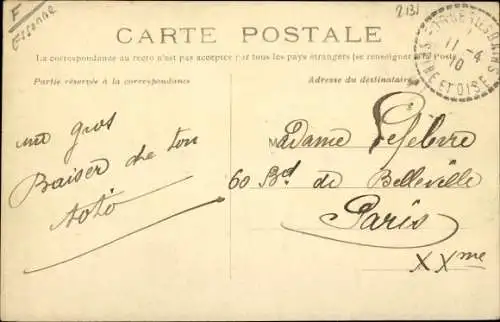 F
Essonne
2131
CARTE POSTALE
La correspondance au recto n'est pas acceptée par tous les pays étrangers (se renseigner à la Poste
Partie réservée à la correspondance
Adresse du destinataire
11 -4
10
SEINE ET OISE
un gros
Baiser de ton
toto
M
Madame Lefebvre
60 Bd de Belleville
Paris
XXme